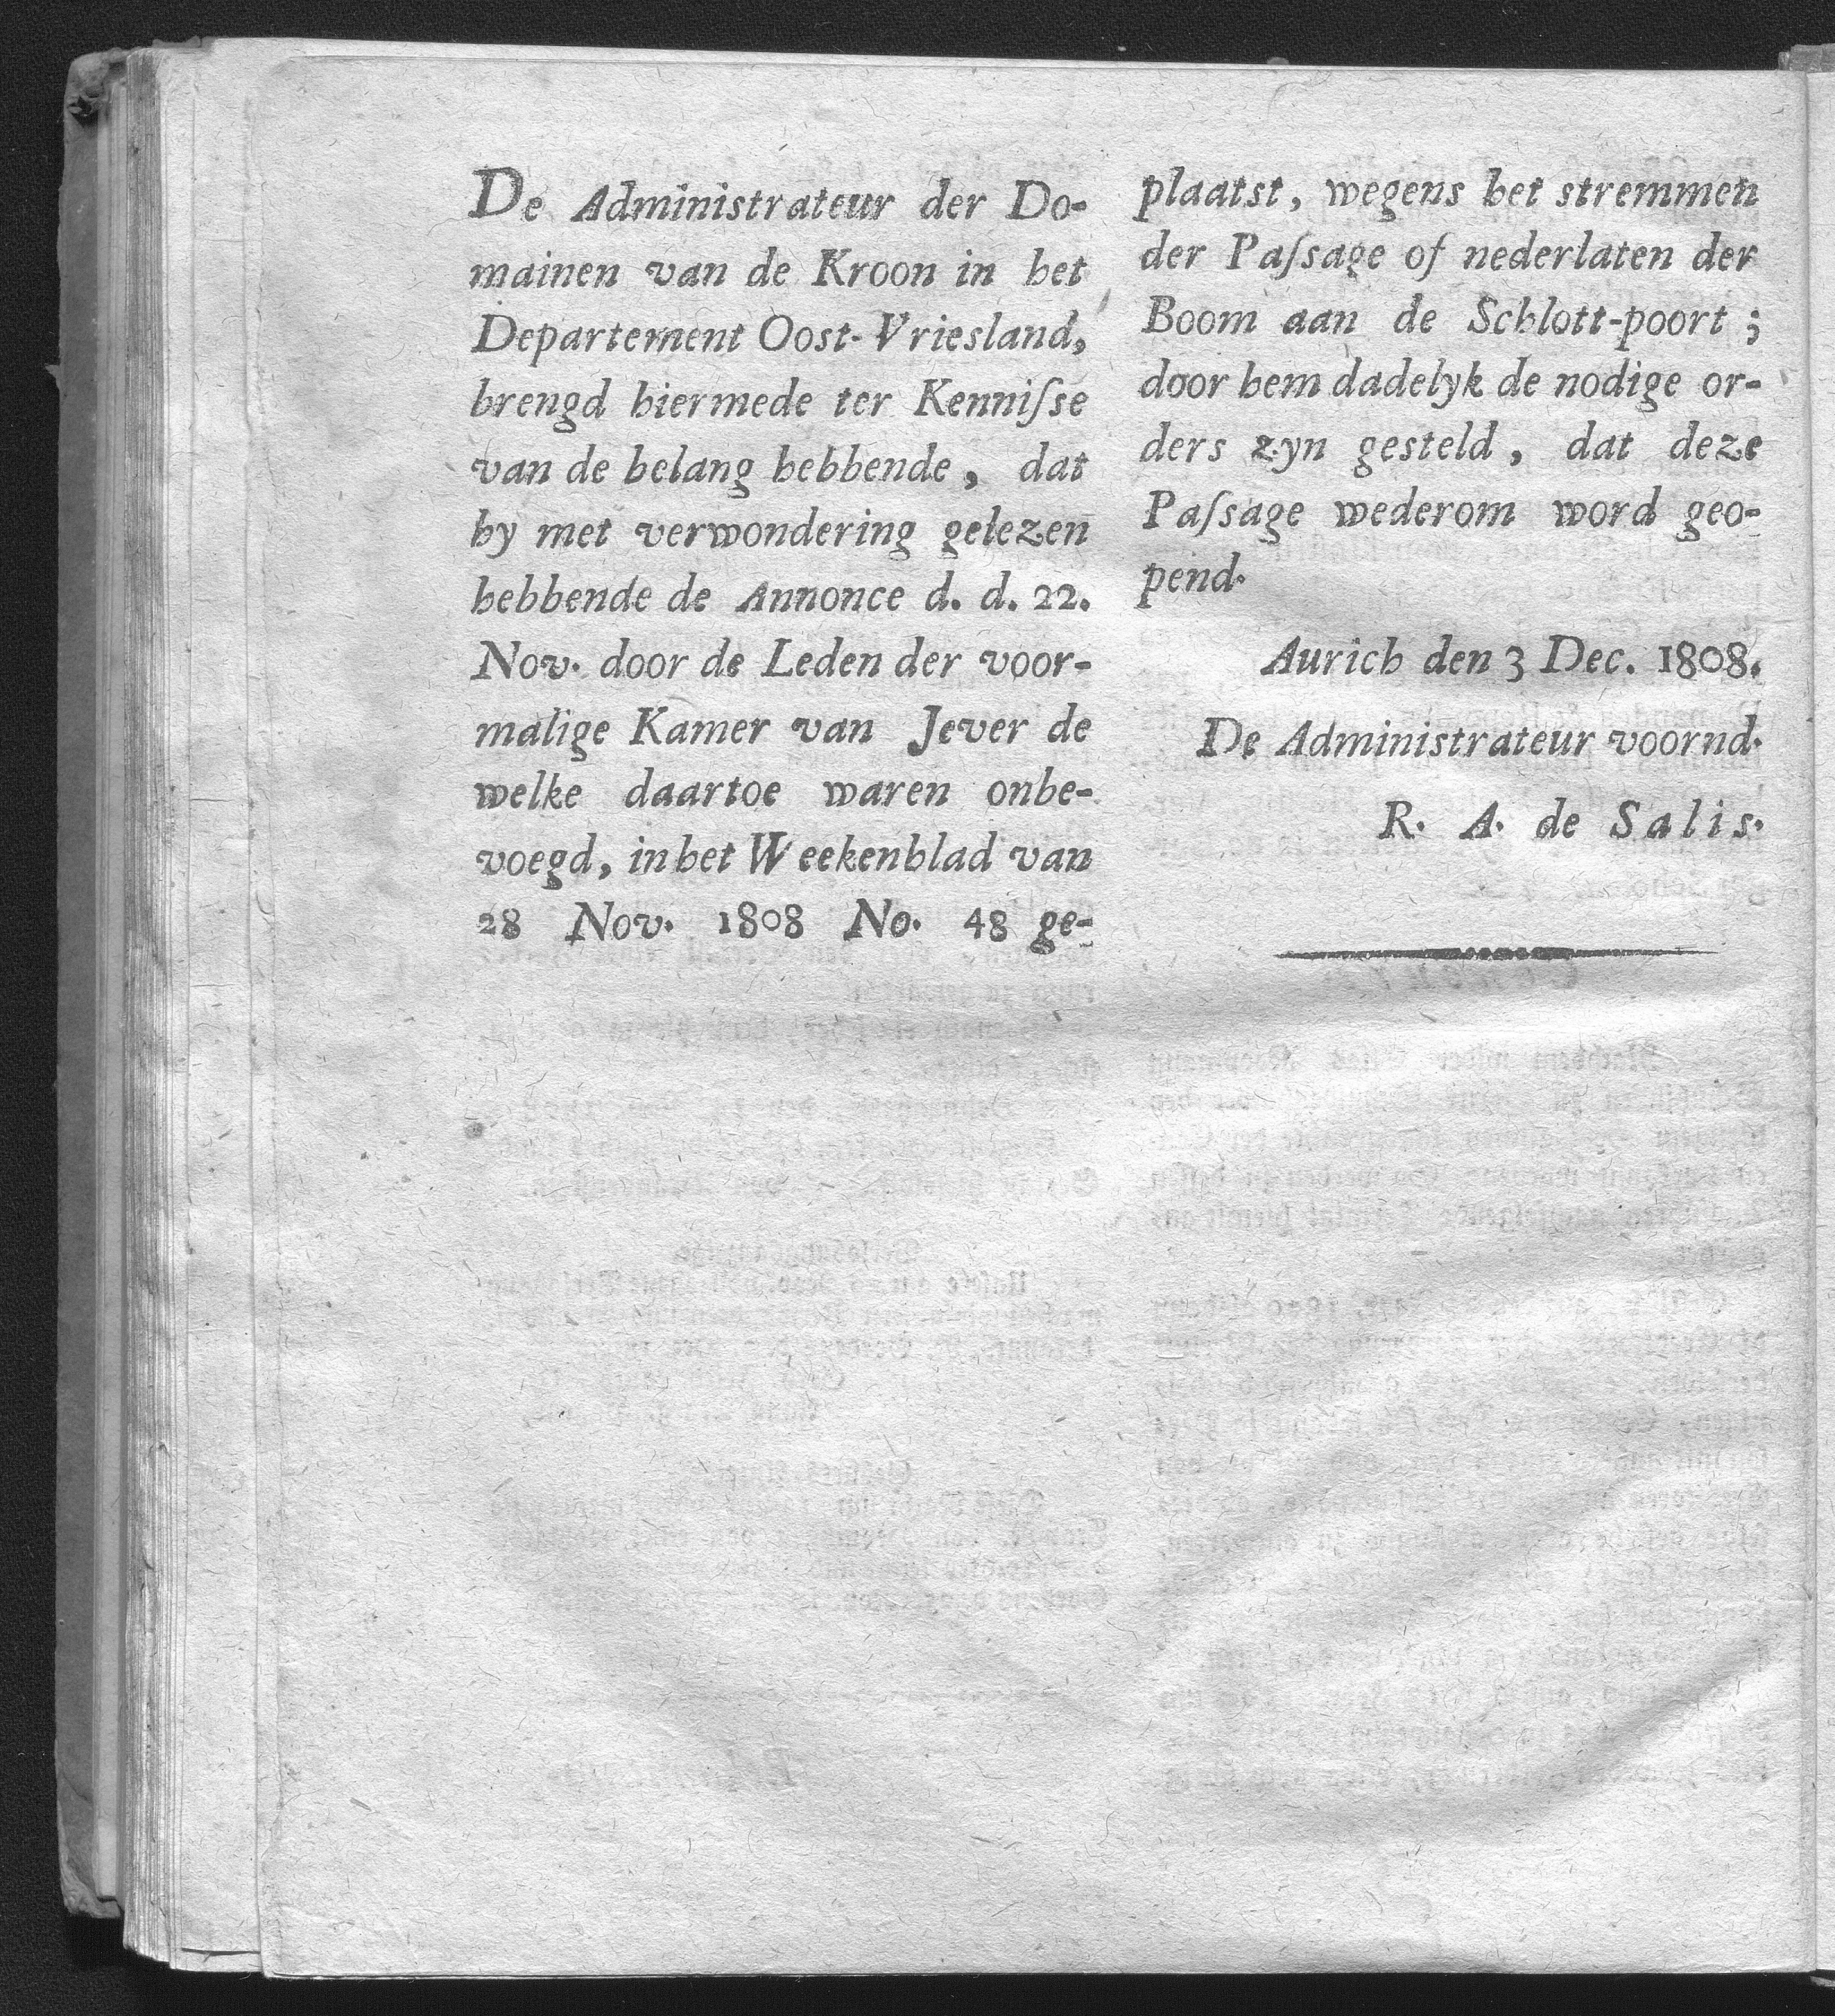 De Administrateur der Do-
mainen van de Kroon in het
Departement Oost-Vriesland,
brengd hiermede ter Kenniſse
van de belang hebbende, dat
hy met verwondering gelezen
hebbende de Annonce d. d. 22.
Nov. door de Leden der voor-
malige Kamer van Jever de
welke daartoe waren onbe-
voegd, in het Weekenblad van
28 Nov. 1808 No. 48 ge-
plaatst, wegens het stremmen
der Paſsage of nederlaten der
Boom aan de Schlott-poort;
door hem dadelyk de nodige or-
ders zyn gesteld, dat deze
Paſsage wederom word geo-
pend.
Aurich den 3 Dec. 1808.
De Administrateur voornd.
R. A. de Salis.